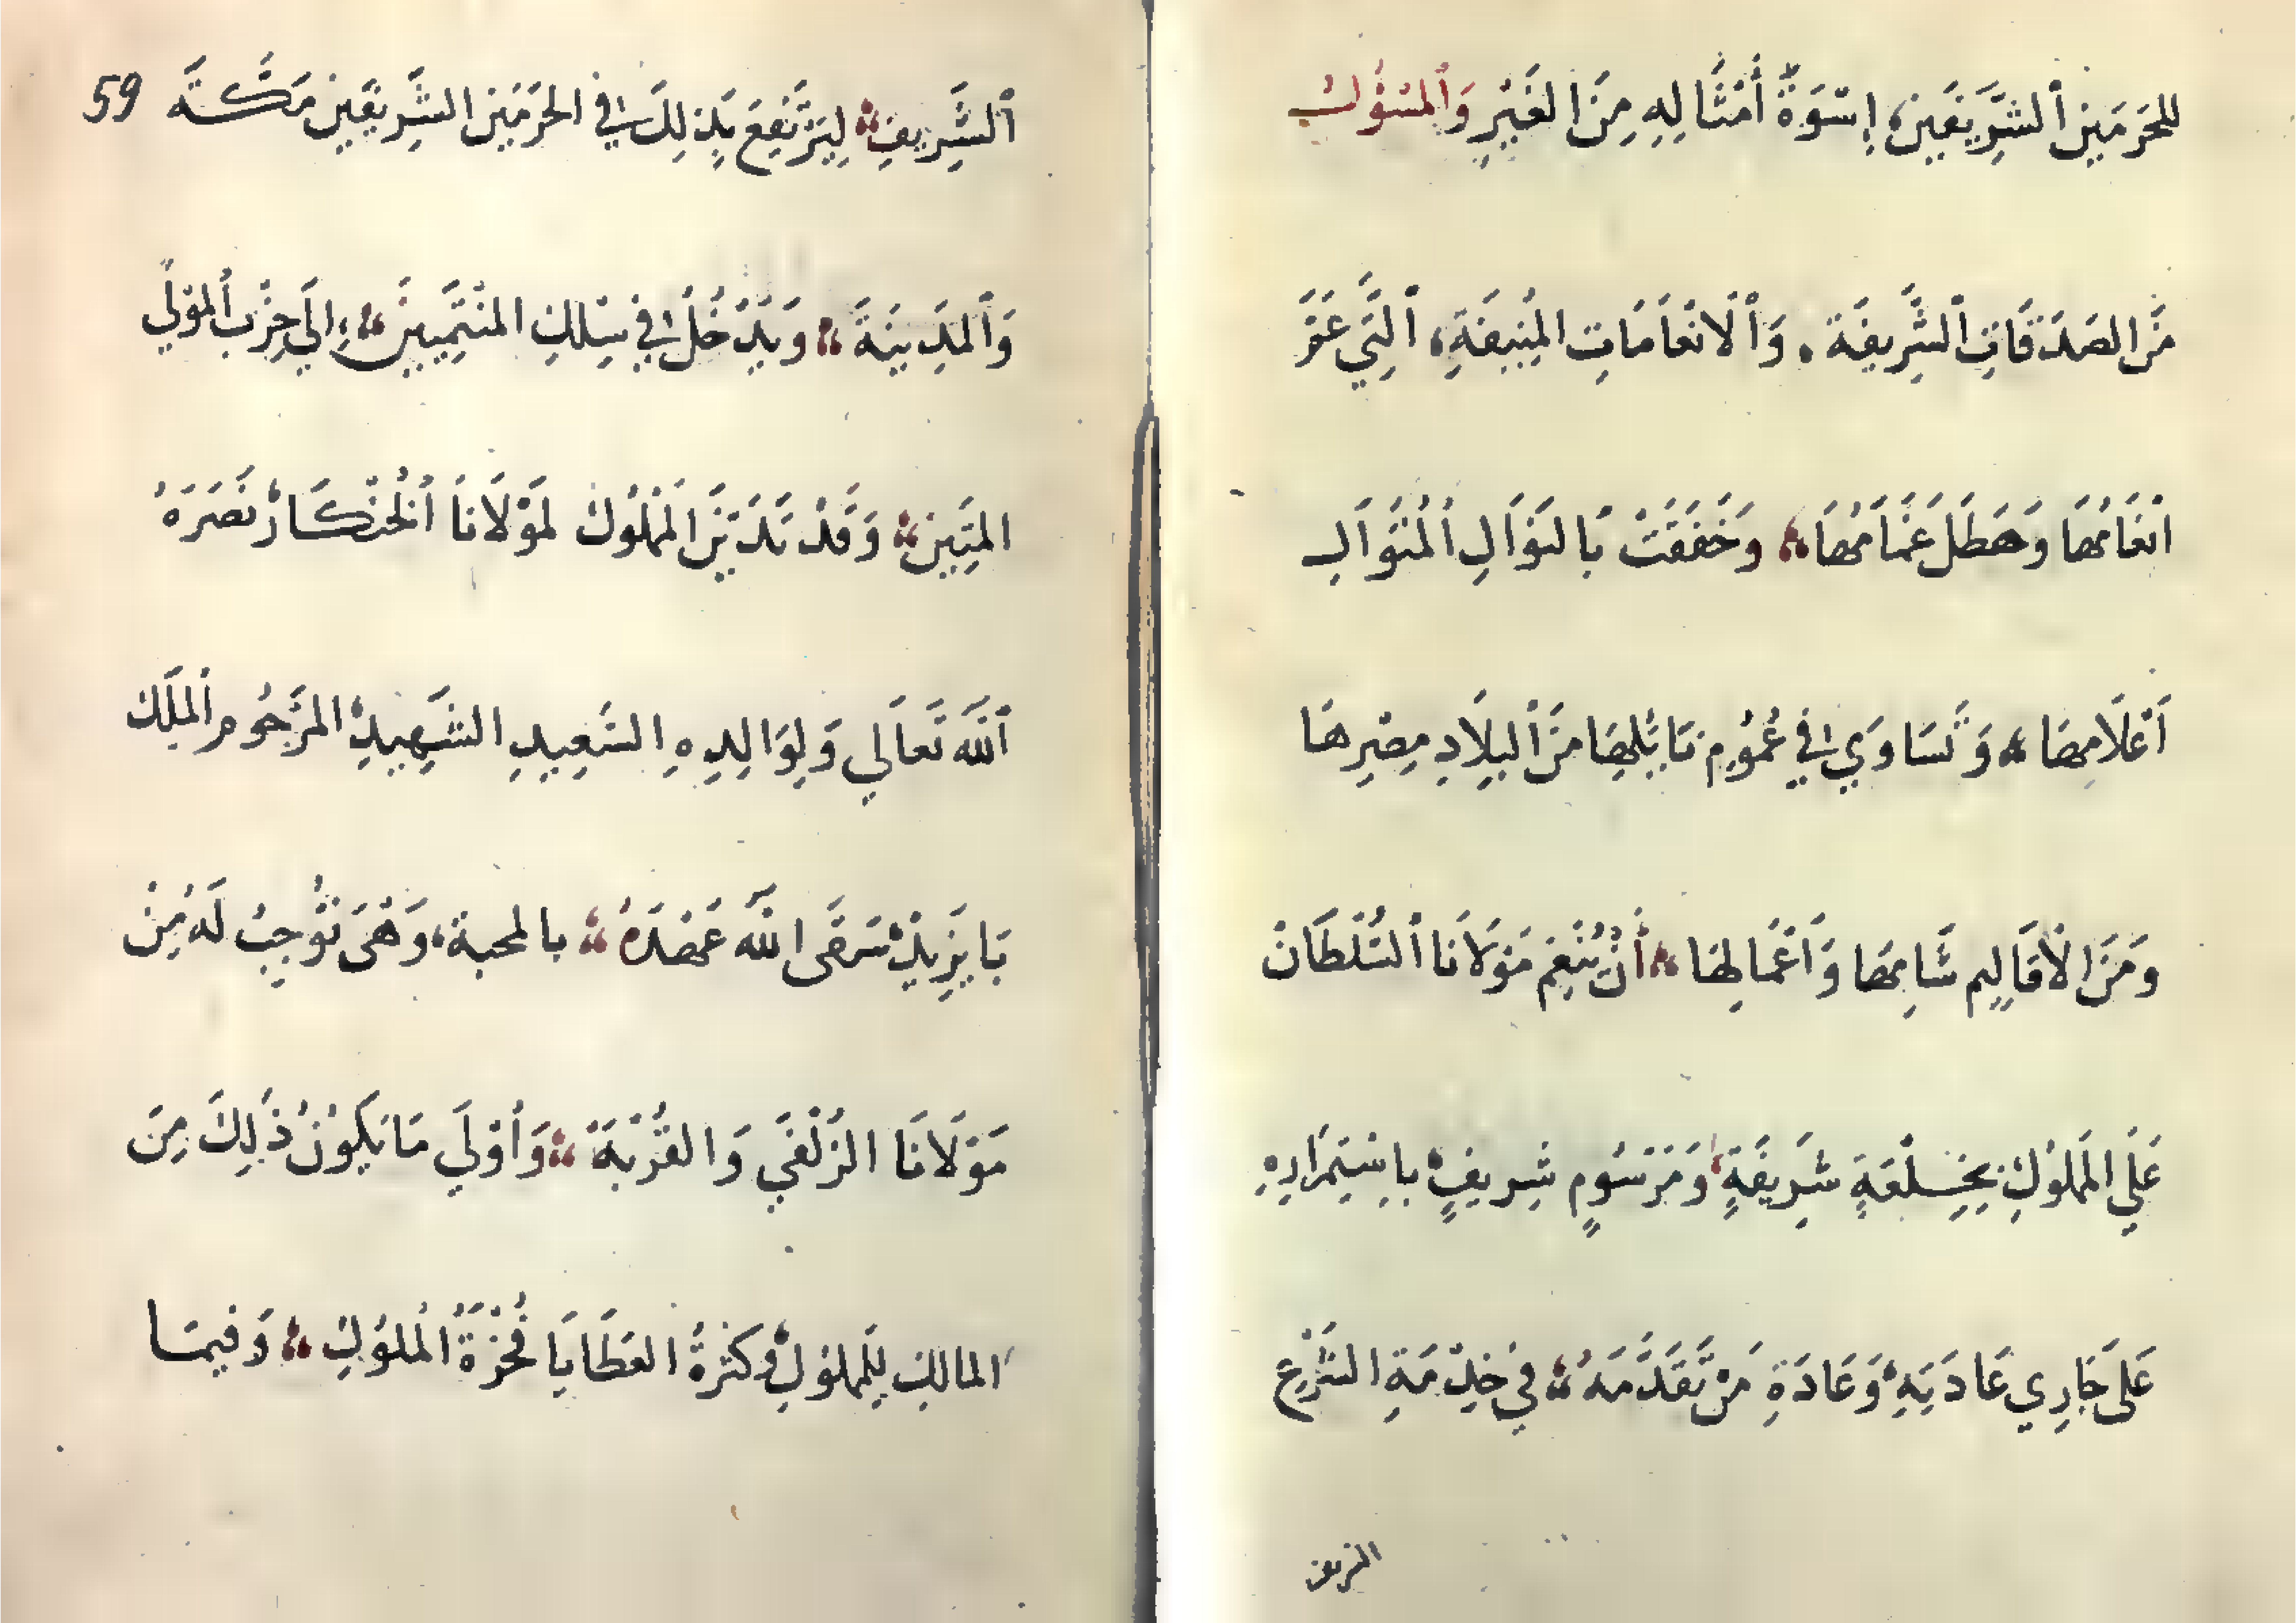 للحَرَمَينِ ٱلشَّرِيفَينِ، إِسْوَةً أَمْثَالِهِ مِنَ الغَيْرِ وَٱلمَسْؤُلُ
مَنَ الصَدَقَاتِ ٱلشَّرِيفَة، وَٱلاَنعَامَاتِ المُنِيفَةِ، ٱلتِّي عَمَّ
انْعَامُهَا وَهَطَلَ غَمَامُهَا وَخَفَقَتْ بَالنَوَالِ ٱلمُتَوَالِ
أَعْلَامِهَا وَتَسَاوَي فِي عُمُومِ مَا يَلِيهَا مَنَ ٱلبِلَادِ مِصْرِهَا
وَمَنَ الاَقَالِيم شَامِهَا وَأَعْمَالِهَا أَنْ يُنْعِمَ مَوْلَانَا ٱلسُّلْطَانْ
عَلَي المَملُوكِ بِخِلْعَةٍ شَرِيفَةٍ وَمَرْسُومٍ شَرِيفٍ بِاسْتِمْرَارِهِ
عَلَى جَارِي عَادَتِهِ وَعَادَةِ مَنْ تَقَدَّمَهُ فِي خِدْمَةِ الشَّرْعِ
الشريف
ٱلشَّرِيفِ لِيَرْتَفِعَ بِذَلِكَ فِي الحَرَمَينِ الشَّرِيفَينِ مَكَّةَ 59
وَٱلمَدِينَةَ وَيَدْخُلَ فِي سِلكِ المُنْتَمِيينَ إِلَي حِزْبِ ٱلمَوْلَي
المَتِينِ وَقَدْ تَدَيَّنَ المَمْلُوكُ لِمَوْلَانَا ٱلخُنْكَارْ نَصَرَهُ
ٱللَّه تَعَالَي وَلِوَالِدِهِ السَّعِيدِ الشَّهِيدِ المَرْحُومِ ٱلمَلَك
بَايَزِيدْ سَقَى اللَّه عَهْدَهُ بالمحبة، وَهْىَ تُوجِبُ لَهُ مِنْ
مَوْلَانَا الزُلْفَي وَالقُرْبَةَ وَأَوْلَي مَا يَكُونُ ذَلِكَ مِنَ
المالك لِلمملوكِ وَكَثْرَةُ العَطَايَا فُخْرَةُ المُلُوكِ وَفِيمَا